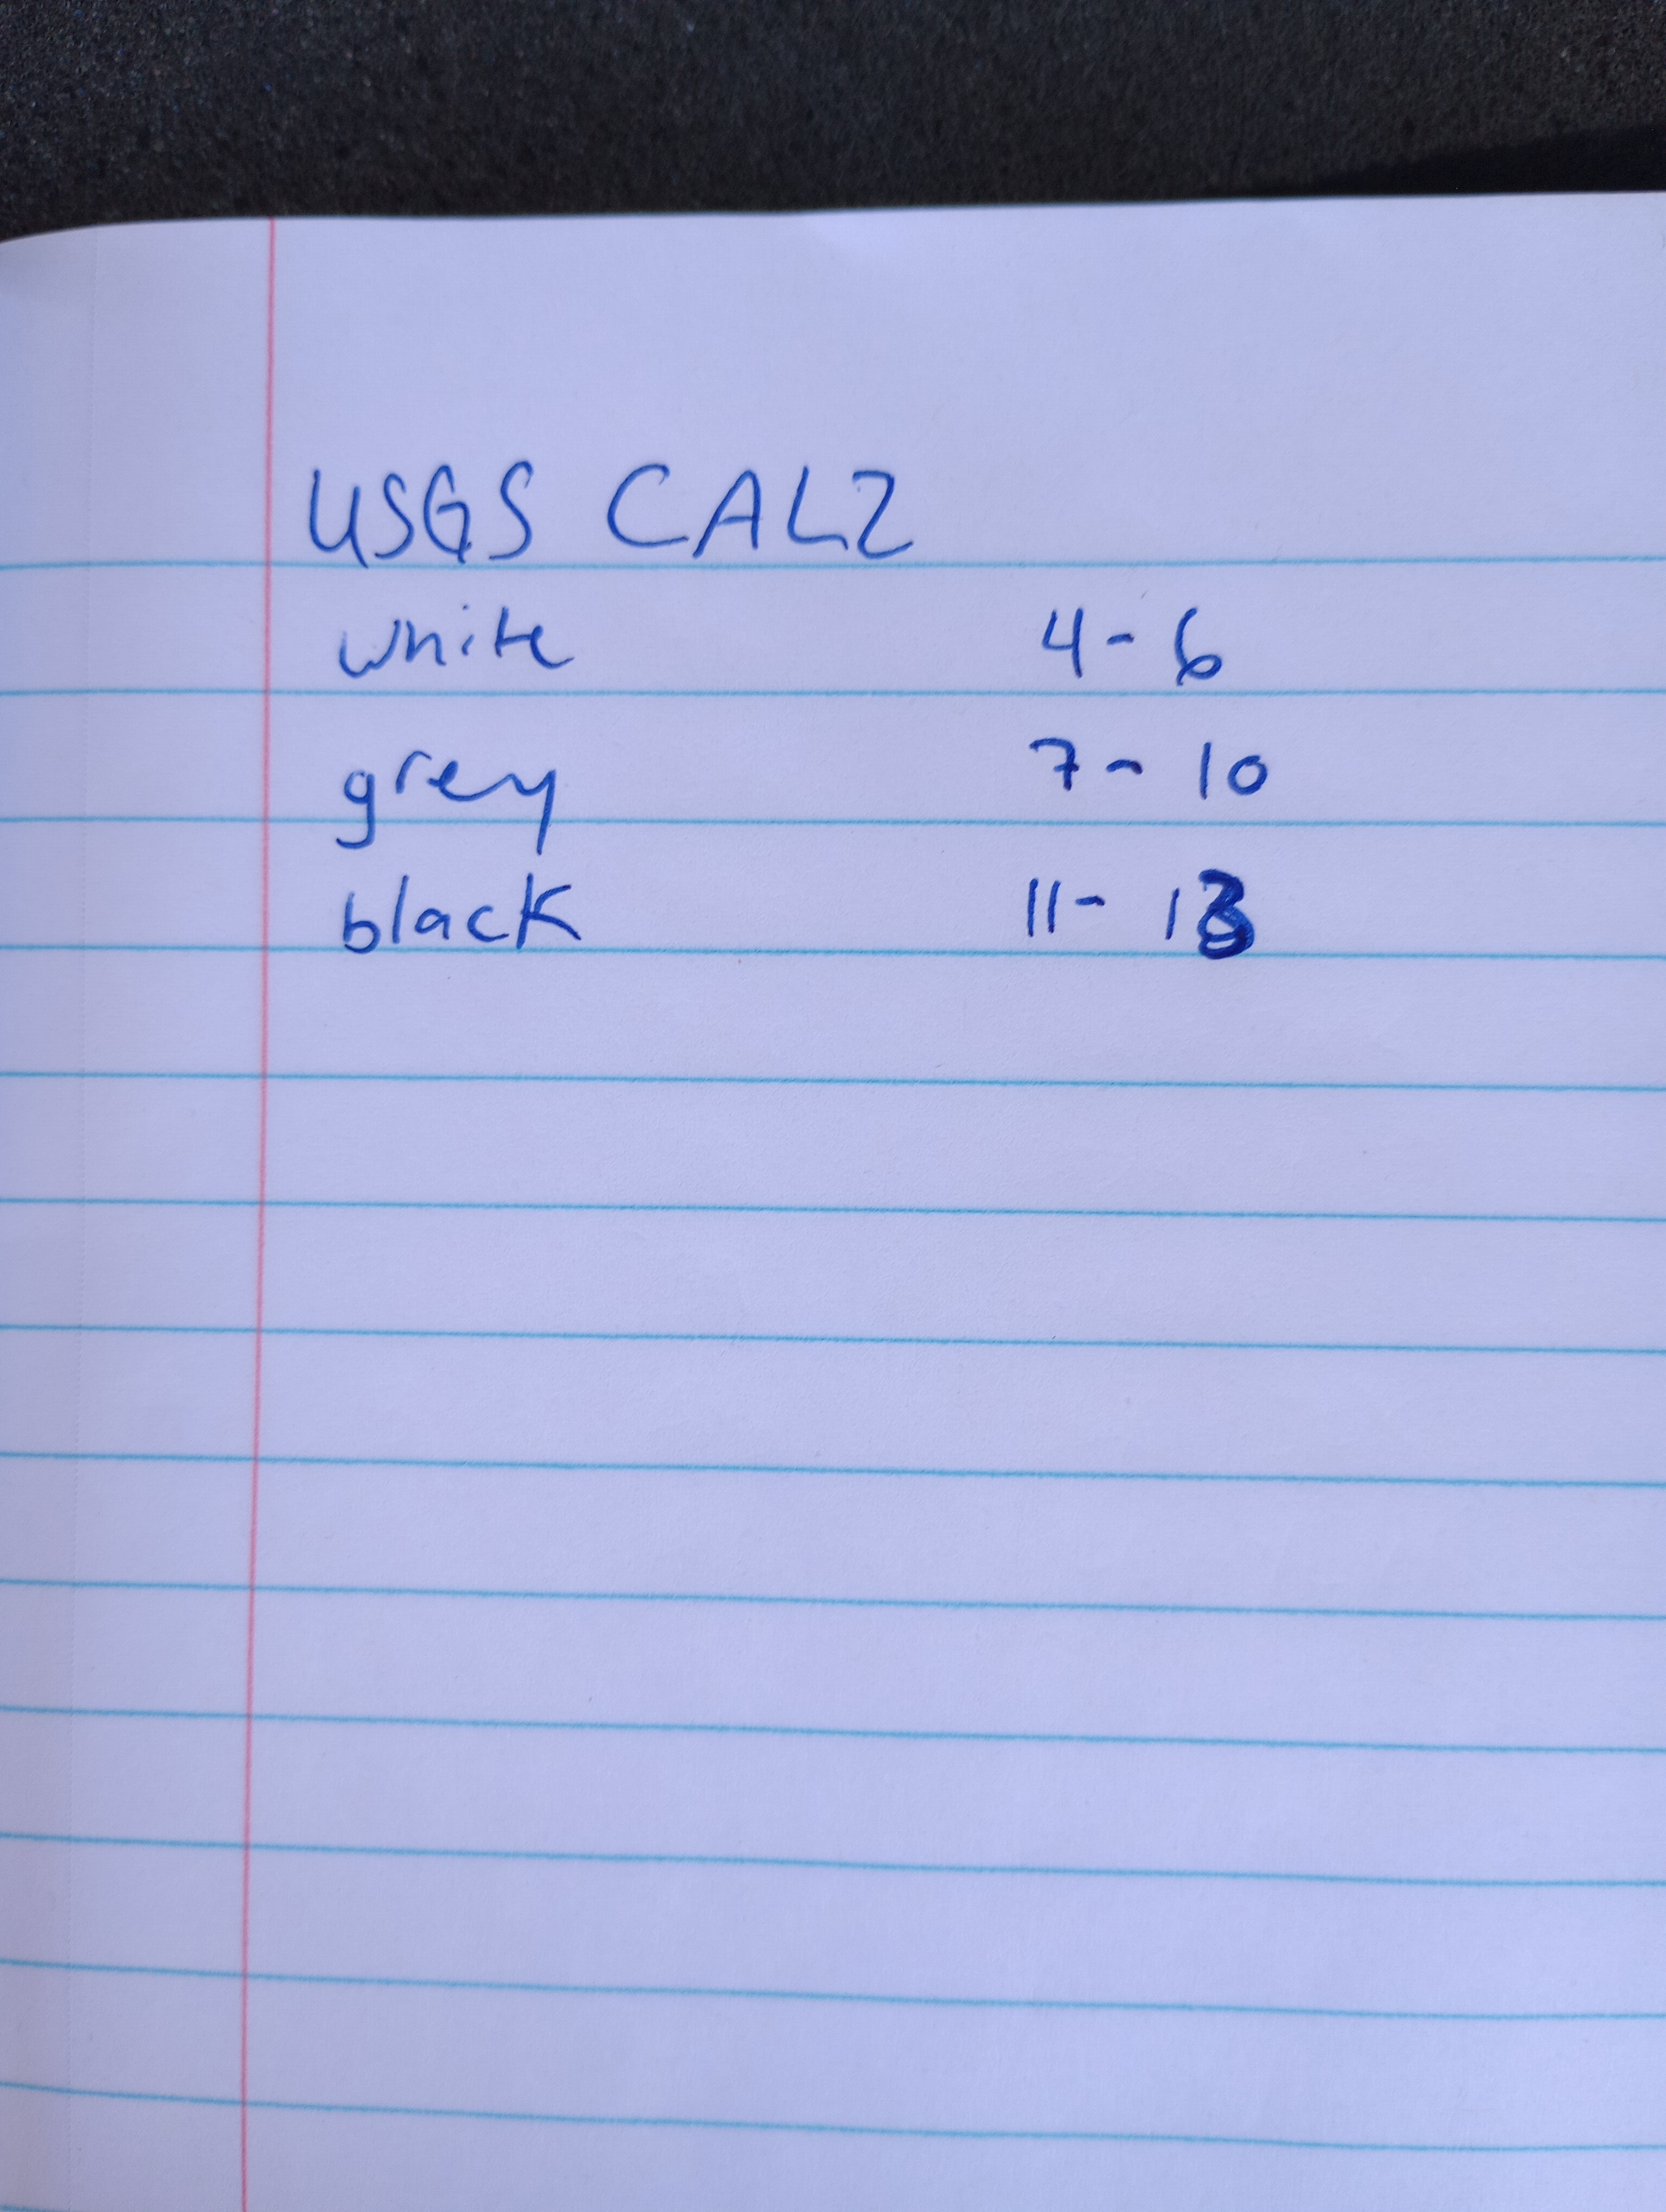 USGS CAL2
white 4-6
grey 7-10
black 11-13